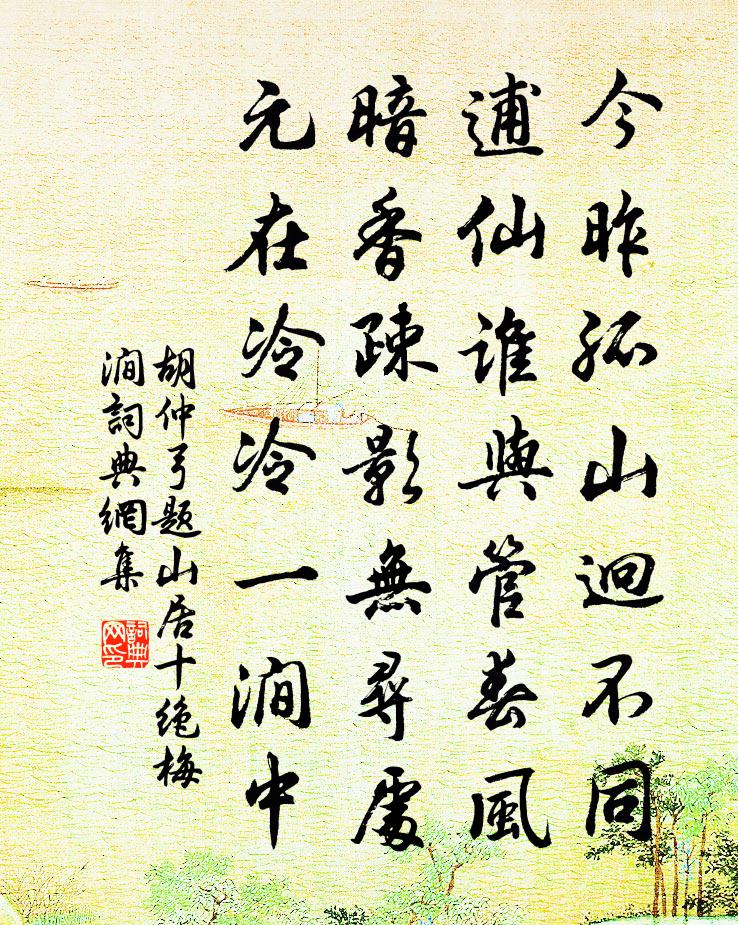 今昨孤山迥不同
逋仙誰與管春風
暗香疎影無尋處
元在冷冷一澗中
胡仲弓題山居十絶梅
澗詞典網集
詞典
网印